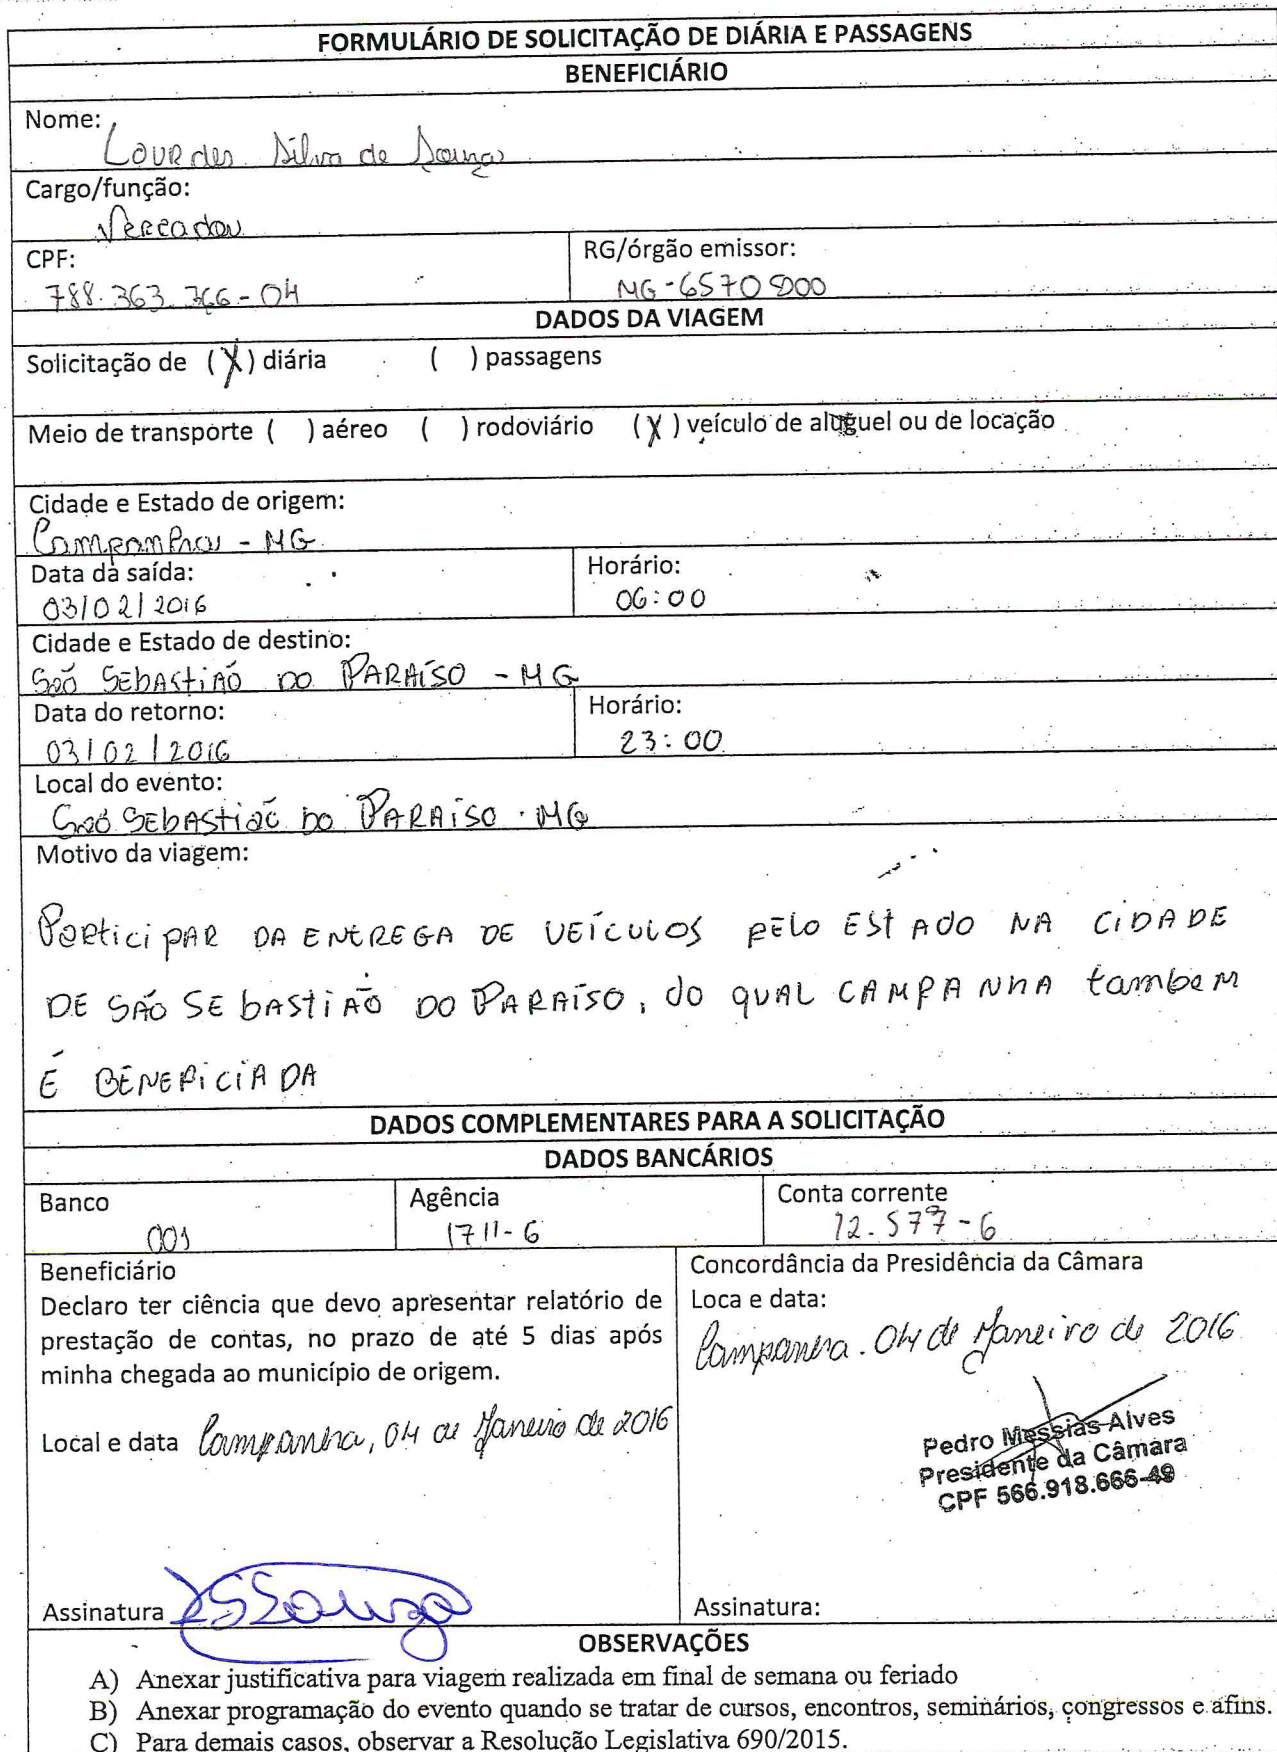 FORMULÁRIO DE SOLICITAÇÃO DE DIÁRIA E PASSAGENS
BENEFICIÁRIO
Nome:
Lourdes Silva de Souza
Cargo/função:
Vereador
CPF:
788.363.766-04
RG/órgão emissor:
MG-6570500
DADOS DA VIAGEM
Solicitação de (X) diária ( ) passagens
Meio de transporte ( ) aéreo ( ) rodoviário (X) veículo de aluguel ou de locação
Cidade e Estado de origem:
Campanha - MG
Data da saída:
03/02/2016
Horário:
06:00
Cidade e Estado de destino:
São SEbAStiÃO DO PARAÍSO - MG
Data do retorno:
03/02/2016
Horário:
23:00
Local do evento:
São SEbAStião DO PARAÍSO - MG
Motivo da viagem:
PARticiPAR DA ENtREGA DE VEÍCULOS PELO EStADO NA CIDADE
DE SÃO SEbAStiÃO DO PARAÍSO, do qUAL CAMPANhA tambeM
É BENEFiCiADA
DADOS COMPLEMENTARES PARA A SOLICITAÇÃO
DADOS BANCÁRIOS
Banco
001
Agência
1711-6
Conta corrente
12.577-6
Beneficiário
Declaro ter ciência que devo apresentar relatório de
prestação de contas, no prazo de até 5 dias após
minha chegada ao município de origem.
Local e data Campanha, 04 de Janeiro de 2016
Assinatura LSSouza
Concordância da Presidência da Câmara
Loca e data:
Campanha. 04 de Janeiro de 2016
Pedro Messias Alves
Presidente da Câmara
CPF 566.918.666-49
Assinatura:
OBSERVAÇÕES
A) Anexar justificativa para viagem realizada em final de semana ou feriado
B) Anexar programação do evento quando se tratar de cursos, encontros, seminários, congressos e afins.
C) Para demais casos, observar a Resolução Legislativa 690/2015.